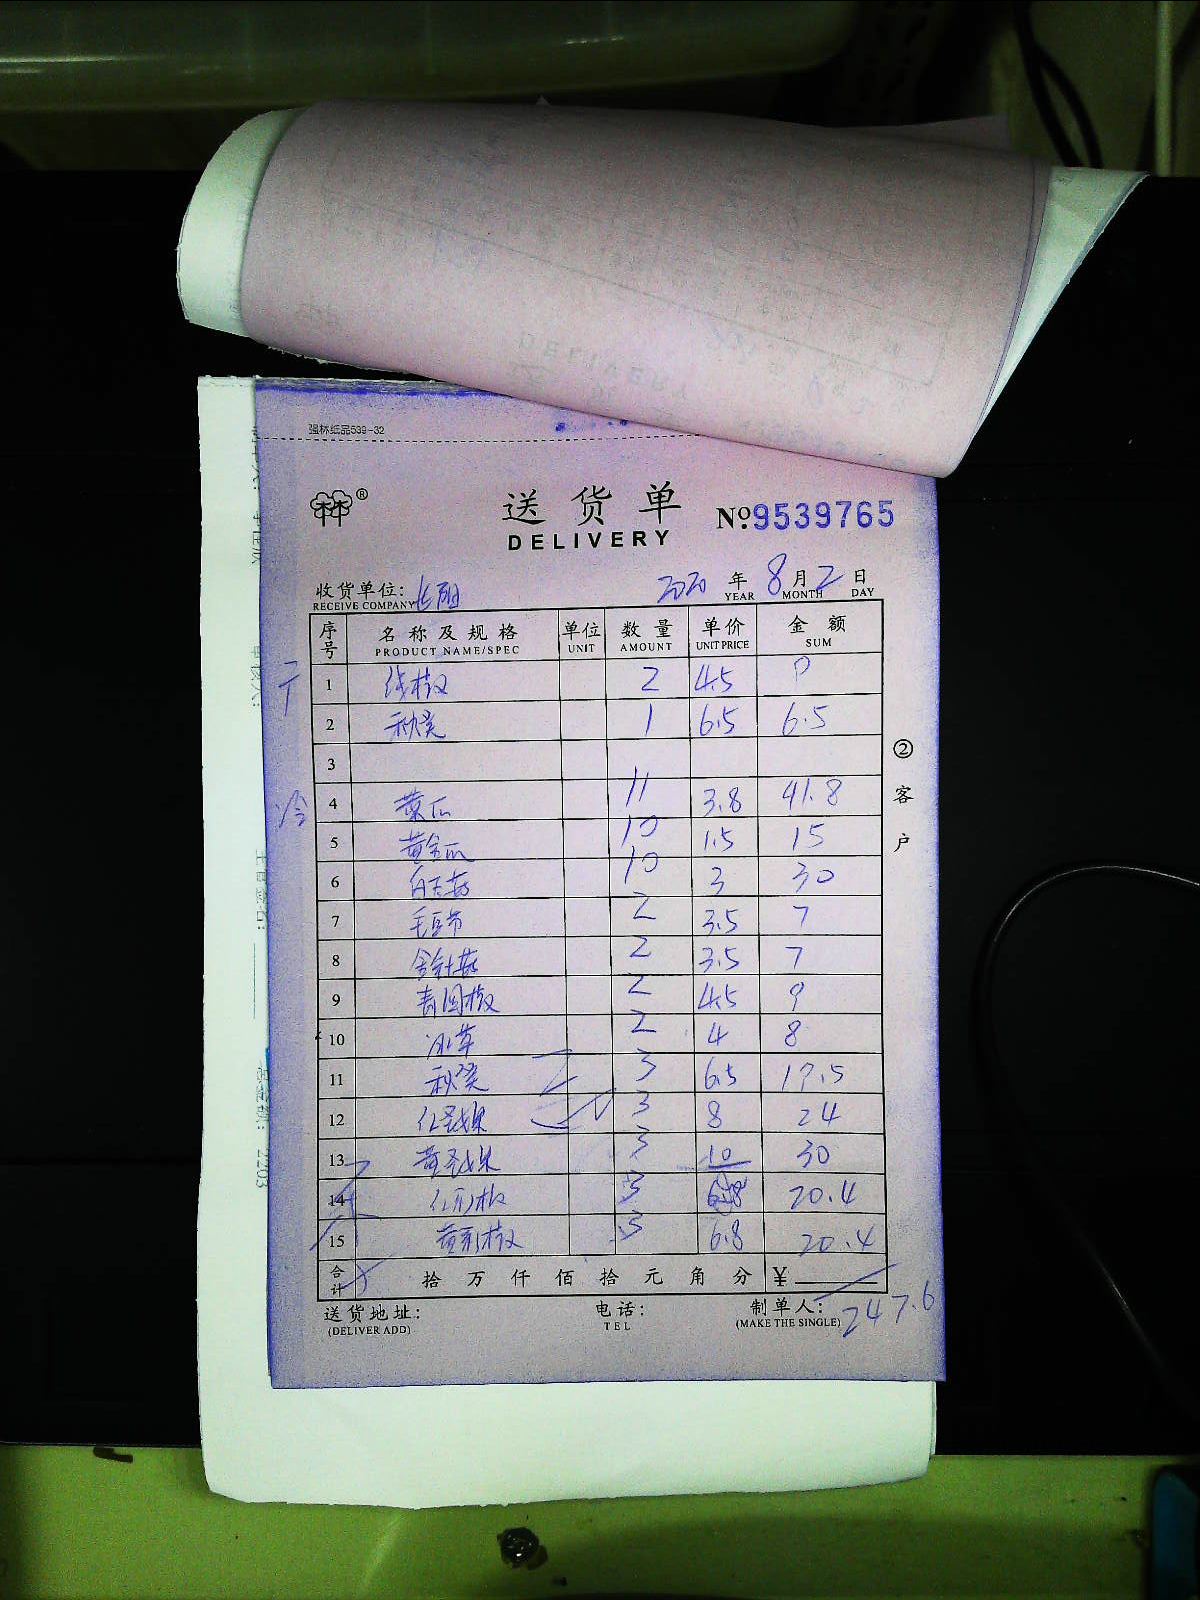 强林纸品539-32
® 送货单 №9539765
DELIVERY
收货单位: 2020 年 8 月 2 日
RECEIVE COMPANY YEAR MONTH DAY
序号 名称及规格 单位 数量 单价 金额
PRODUCT NAME/SPEC UNIT AMOUNT UNIT PRICE SUM
1 线椒 2 4.5 9
2 秋葵 1 6.5 6.5
3
冷 4 黄瓜 11 3.8 41.8
5 黄金瓜 10 1.5 15
6 白玉菇 10 3 30
7 毛豆节 2 3.5 7
8 金针菇 2 3.5 7
9 青圆椒 2 4.5 9
10 冰草 2 4 8
11 秋葵 3 6.5 19.5
12 红圣女果 3 8 24
13 黄圣女果 3 10 30
14 红彩椒 3 6.8 20.4
15 黄彩椒 3 6.8 20.4
合计 拾 万 仟 佰 拾 元 角 分 ¥
247.6
送货地址: 电话: 制单人:
(DELIVER ADD) TEL (MAKE THE SINGLE)
②客户